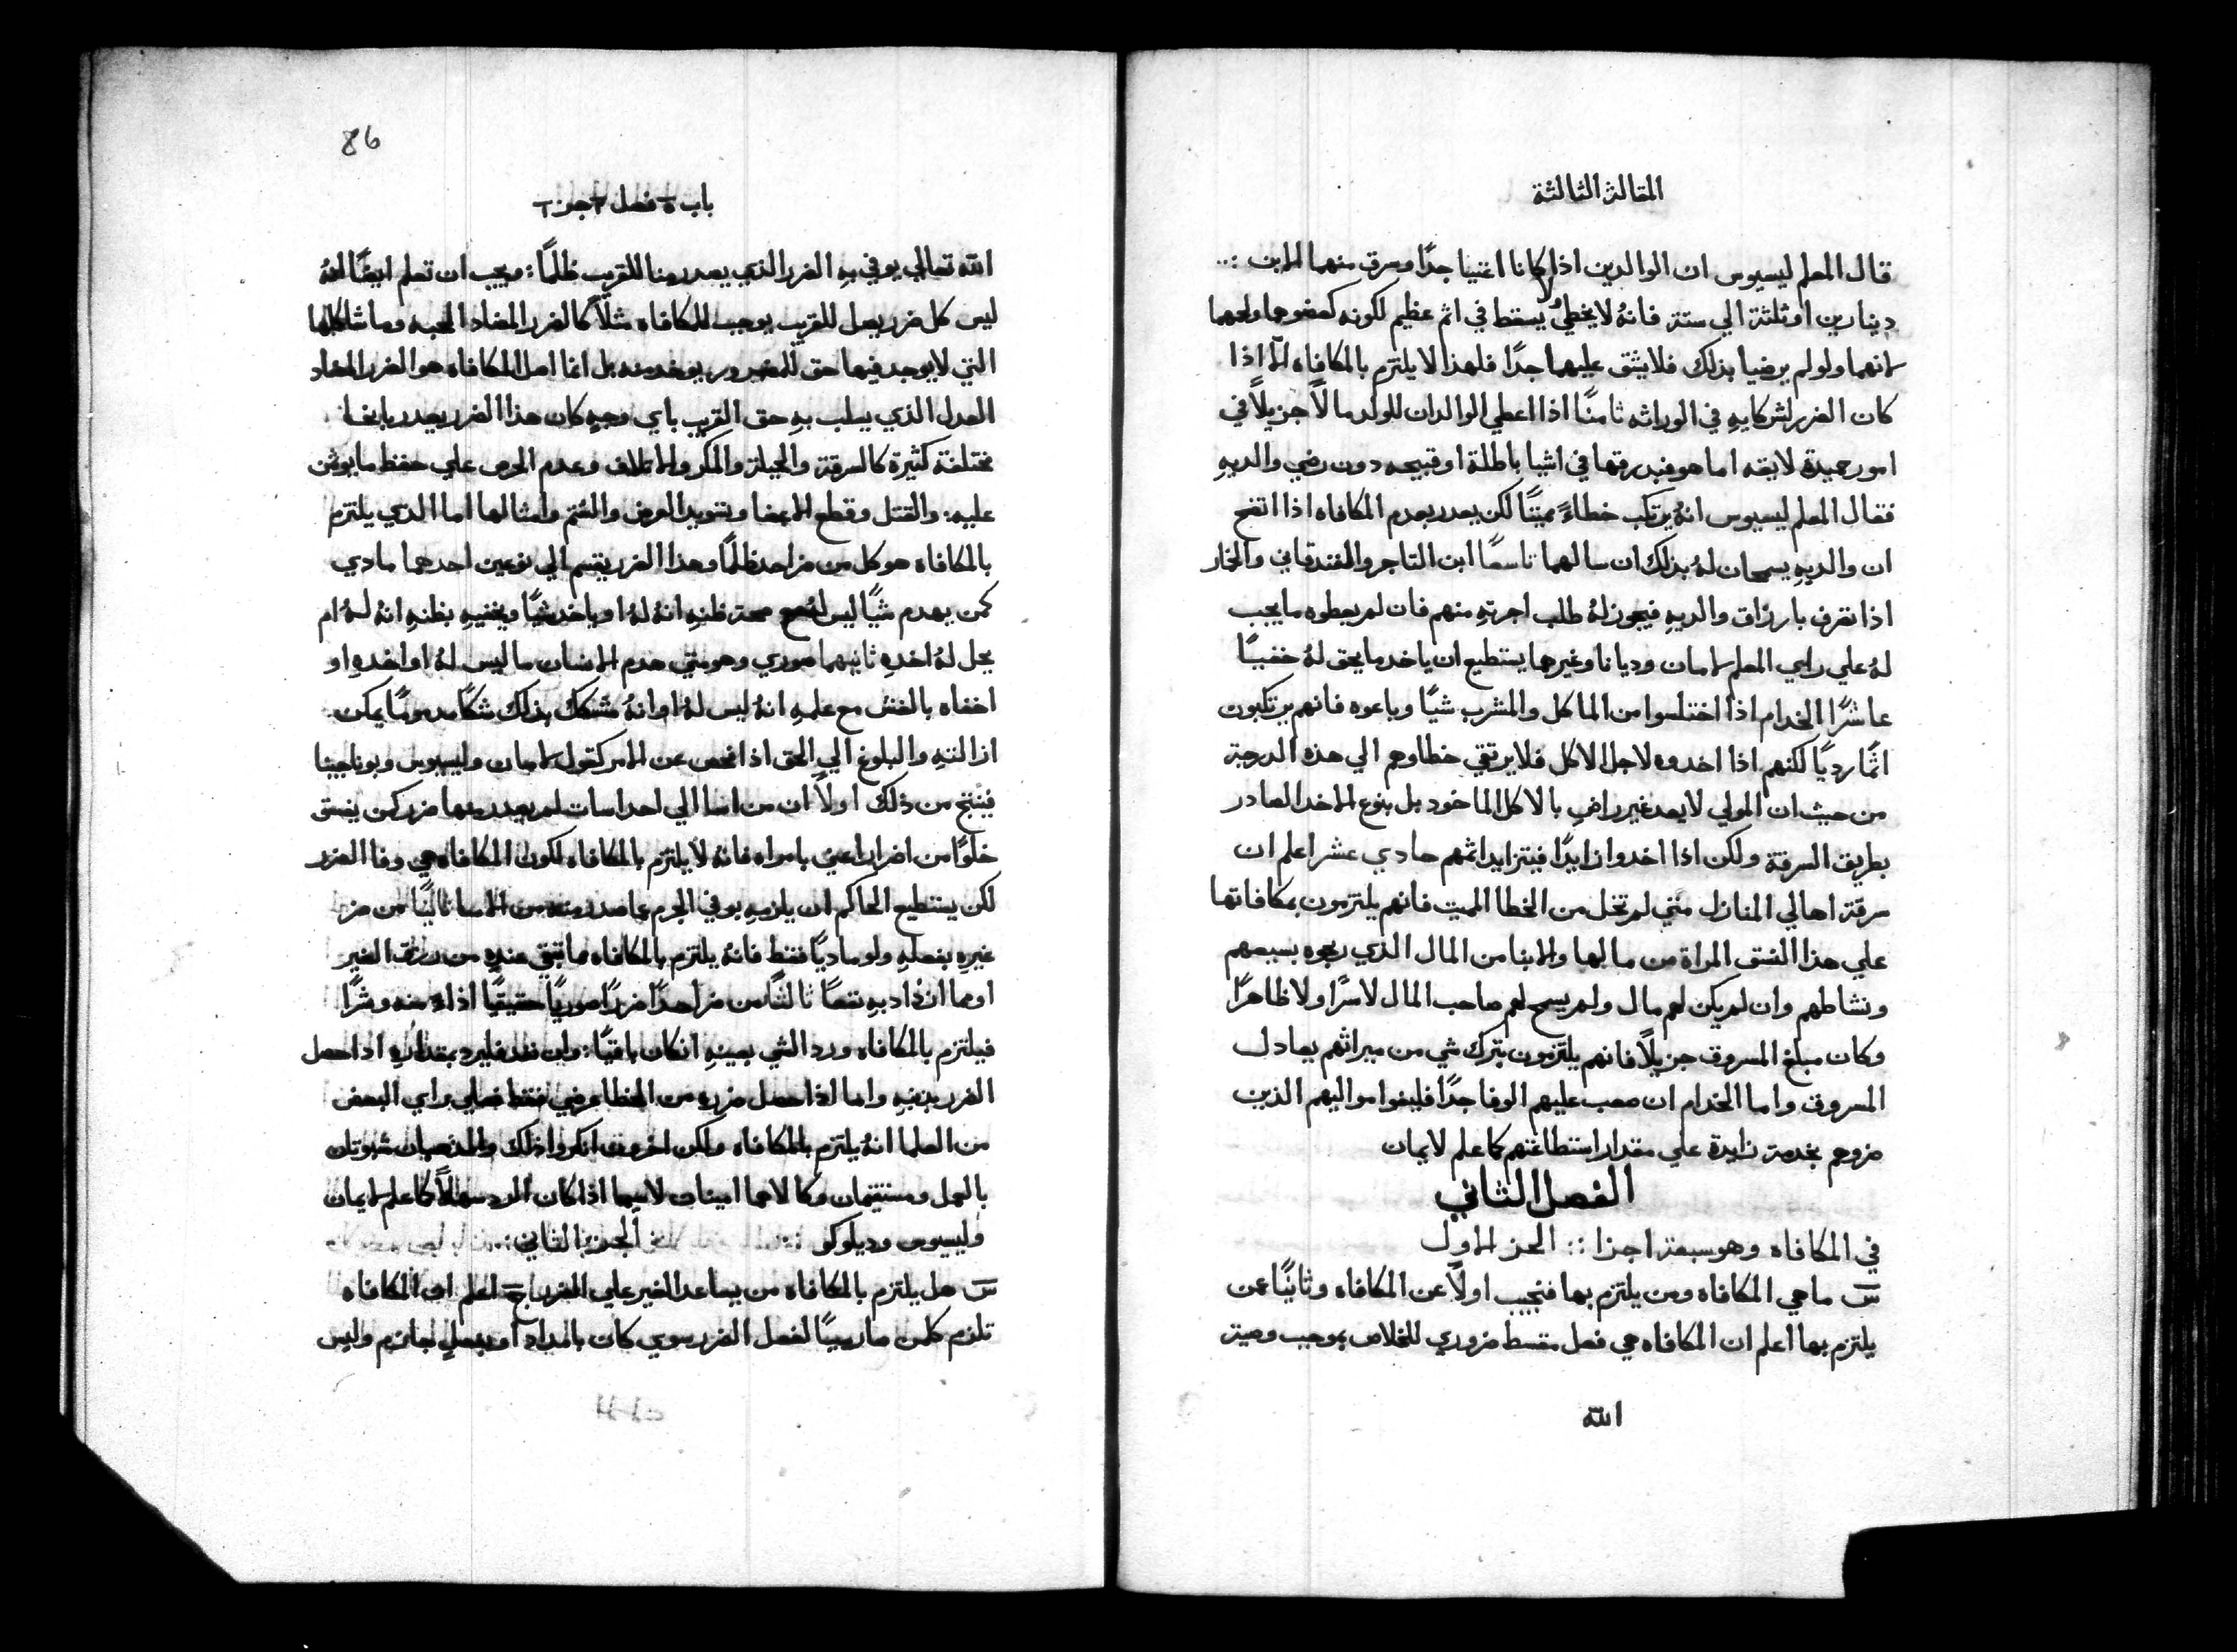 المقالة الثالثة
قال المعلم ليسيوس ان الوالدين اذا كانا اغنيا جدًا وسرق منهما الابن
دينارين او ثلثة الي ستة فانهُ لا يخطيُ لا يسقط في اثم عظيم لكونه كعضوهما ولحمهما
لانهما ولو لم يرضيا بذلك فلا يشق عليهما جدًا فلهذا لا يلتزم بالمكافاه الّا اذا
كان الضرر لشركايهِ في الوراثه ثامنًا اذا اعطي الوالدان للولد مالًا جزيلًا في
امور حميدة لايقه اما هو فبدرقها في اشيا باطلة او قبيحه دون رضي والديهِ
فقال المعلم ليسيوس انهُ يرتكب خطاءً مميتًا لكن يعدر بعدم المكافاه اذا اتضح
ان والديهِ يسمحان لهُ بذلك ان سالهما تاسعًا ابن التاجر والفندقاني والخمار
اذا تصرف بارزاق والديهِ فيجوز لهُ طلب اجرتهِ منهم فان لم يعطوه ما يجب
لهُ علي راي المعلم لامان وديانا وغيرها يستطيع ان ياخد ما يحق لهُ خفيًا
عاشرًا الخدام اذا اختلسوا من الماكل والمشرب شيًا وباعوه فانهم يرتكبون
اثمًا رديًا لكنهم اذا اخدوه لاجل الاكل فلا يرتقي خطاوهم الي هذه الدرجة
من حيث ان المولي لا يعد غير راضٍ بالاكل الماخود بل بنوع الاخد الصادر
بطريق السرقة ولكن اذا اخدوا زايدًا فيتزايد اثمهم حادي عشر اعلم ان
سرقة اهالي المنازل متي لم تخل من الخطا المميت فانهم يلتزمون بمكافاتها
علي هذا النسق المراة من مالها والابنا من المال الذي ربحوه بسعيهم
ونشاطهم وان لم يكن لهم مال ولم يسمح لهم صاحب المال لا سرًا ولا ظاهرًا
وكان مبلغ المسروق جزيلًا فانهم يلتزمون بترك شي من ميراثهم يعادل
المسروق واما الخدام ان صعب عليهم الوفا جدًا فليفوا مواليهم الذين
ضروهم بخدمة زايدة علي مقدار استطاعتهم كما علم لايمان
الفصل الثاني
في المكافاه وهو سبعة اجزا :: الجز الاول
س ما هي المكافاه ومن يلتزم بها فنجيب اولًا عن المكافاه وثانيًا عمن
يلتزم بها اعلم ان المكافاه هي فعل مقسط ضروري للخلاص بموجب وصية
الله
86
باب فصل جز
الله تعالي يوفي بهِ الضرر الذي يصدر منا للقريب ظلمًا: ويجب ان تعلم ايضًا انهُ
ليس كل ضرر يصل للقريب يوجب المكافاه مثلًا كالضرر المضاد المحبه وما شاكلها
التي لا يوجد فيها حق للمضرور يوخد منه بل انما اصل المكافاه هو الضرر المضاد
العدل الذي يسلب بهِ حق القريب باي وجهٍ كان هذا الضرر يصدر بانحا
مختلفة كثيرة كالسرقة والحيلة والمكر والاتلاف وعدم الحرص علي حفظ ما يوتمن
عليه: والقتل وقطع الاعضا وتسويد العرض والشتم وامثالها اما الذي يلتزم
بالمكافاه هو كل من ضر احد ظلمًا وهذا الضرر يقسم الي نوعين احدهما مادي
كمن يهدم شيًا ليس لهُ مع صحة ظنهِ انهُ لهُ او ياخد شيًا ويخفيهِ بظنهِ انهُ لهُ ام
يحل لهُ اخدهِ ثانيهما صوري وهو متي هدم الانسان ما ليس لهُ او اخده او
اخفاه بالغش مع علمهِ انهُ ليس لهُ او انهُ متشكك بذلك شكًا مدمومًا يمكن
ازالتهِ والبلوغ الي الحق اذا فحص عن الامر كقول لامان وليسيوس وبوناجينا
فينتج من ذلك اولًا ان من اسا الي احد اسات لم يصدر منها ضرر كمن يفسق
خلوًا من اضرار اعني بامراه فانهُ لا يلتزم بالمكافاه لكون المكافاه هي وفا الضرر
لكن يستطيع الحاكم ان يلزمهِ بوفي الجرم عما صدر منه من الاسا ثانيًا من ضر
غيرهِ بفعلهِ ولو ماديًا فقط فانهُ يلتزم بالمكافاه مما تبقي عندهِ من رزق الغير
او مما ازداد بهِ نفعًا ثالثًا من ضر احدًا ضررًا صوريًا حقيقيًا اذاءً منه وشرًا
فيلتزم بالمكافاه ورد الشي بعينهِ انكان باقيًا: وان نفد فليرد بمقدارهِ اذا حصل
الضرر بذنبهِ واما اذا حصل ضرره من الخطا عرضي فقط فعلي راي البعض
من العلما انهُ يلتزم بالمكافاه ولكن اخرون انكروا ذلك والمذهبان مثبوتان
بالعمل ومستقيمان وكالاهما امينان لاسيما اذا كان الرد سهلًا كما علم لايمان
وليسيوس وديلوكو :: الجز الثاني ::
س هل يلتزم بالمكافاه من يساعد الغير علي الضرر ج اعلم ان المكافاه
تلزم كلمن صار سببًا لفعل الضرر سوي كان بالمداد او بفعلٍ جازم وليس